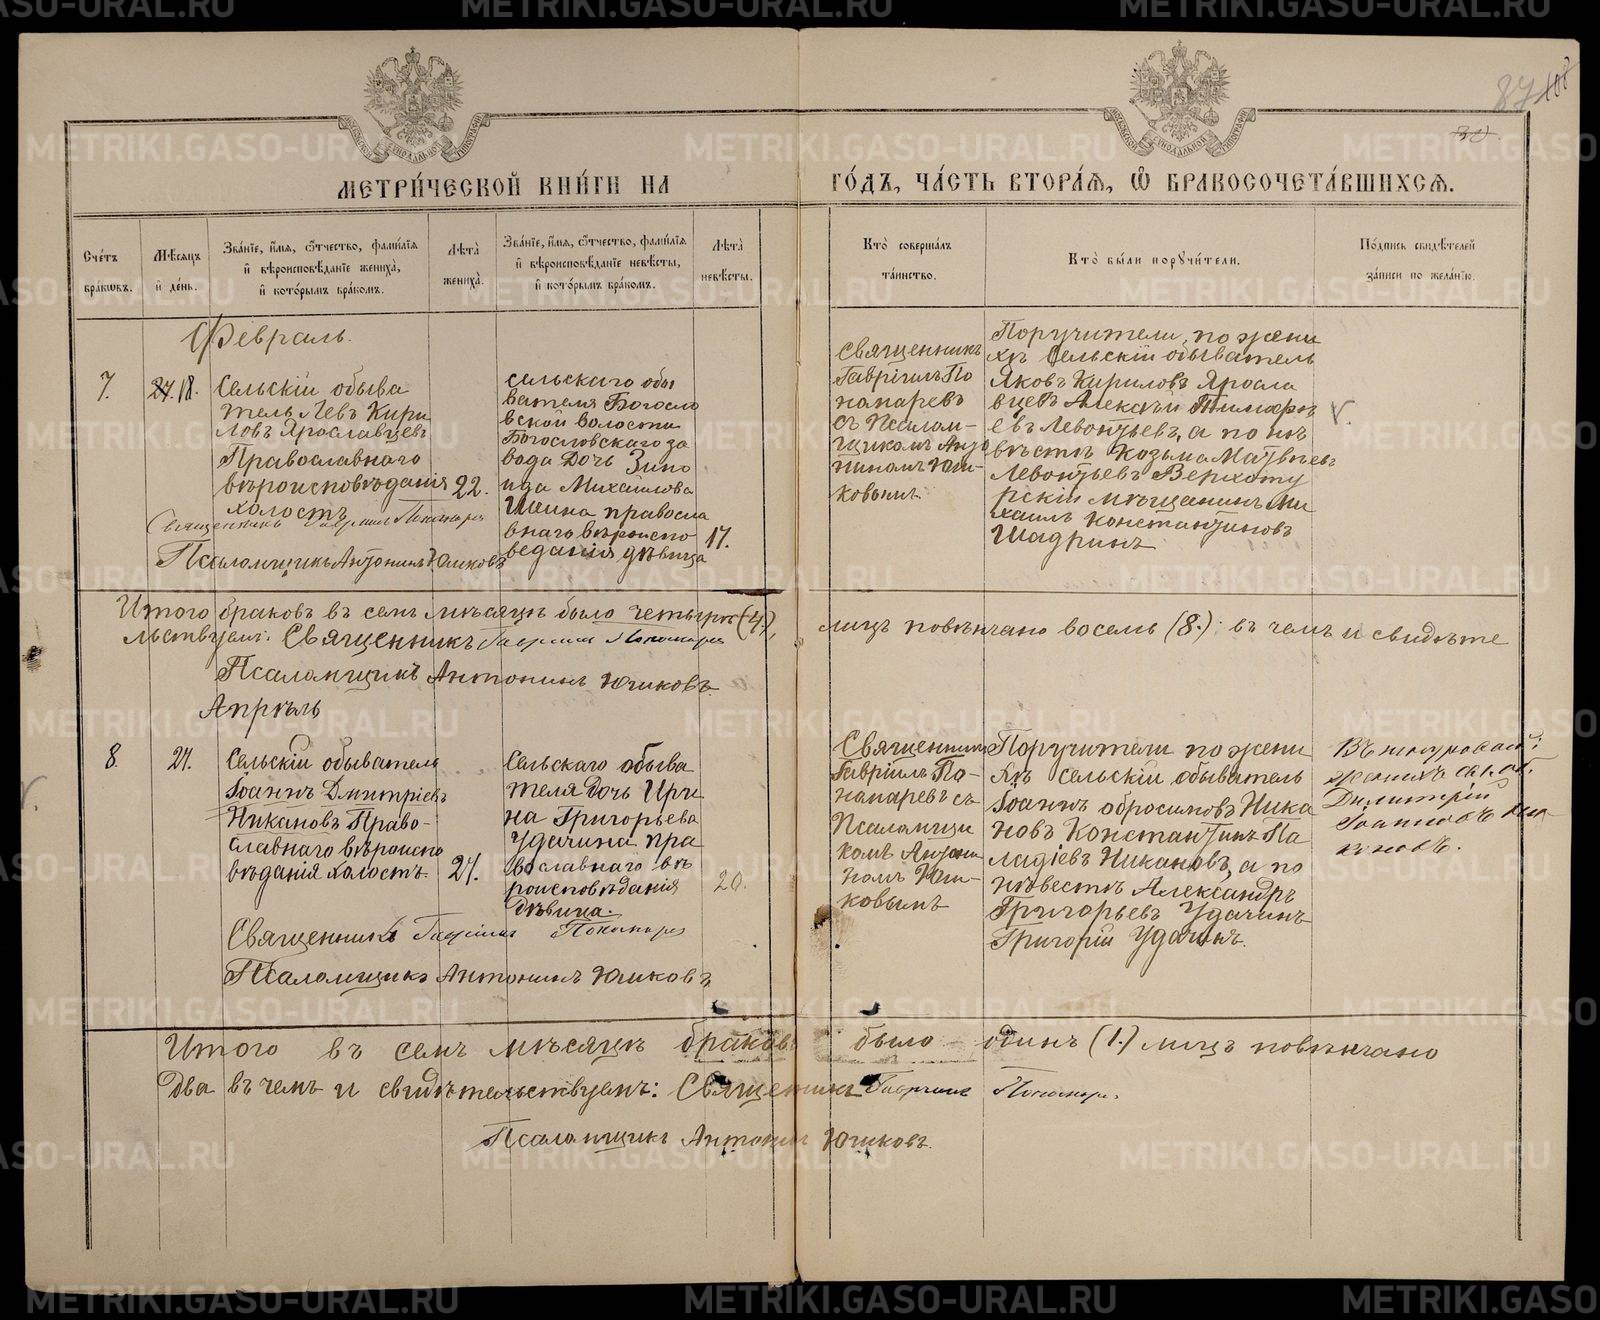 87 108
30
МЕТРИ́ЧЕСКОЙ КНИ́ГИ НА
ГО́ДЪ, ЧА́СТЬ ВТОРА́Я, Ѿ БРАКОСОЧЕТА́ВШИХСѦ.
Сче́тъ бра́кѡвъ.
Мѣ́сѧцъ и҆ де́нь.
Зва́нїе, и҆́мѧ, ѻ҆́тчество, фами́лїѧ и҆ вѣроисповѣ́данїе жениха̀, и҆ кото́рымъ бра́комъ.
Лѣта̀ жениха̀.
Зва́нїе, и҆́мѧ, ѻ҆́тчество, фами́лїѧ и҆ вѣроисповѣ́данїе невѣ́сты, и҆ кото́рымъ бра́комъ.
Лѣта̀ невѣ́сты.
Кто̀ соверша́лъ та́инство.
Кто̀ бы́ли порꙋчи́тели.
По́дпись свидѣ́телей за́писи по жела́нїю.
Февраль.
7.
18.
Сельскій обыва
тель Левъ Кири
ловъ Ярославцевъ
Православнаго
вѣроисповѣданія
холостъ
22.
сельскаго обы
вателя Богосло
вской волости
Богословскаго за
вода дочь Зино
ида Михаилова
Шеина правосла
внаго вѣроиспо
веданія дѣвица
17.
Священникъ
Гавріилъ По
номаревъ
съ Псалом-
щикомъ Анто
ниномъ Юши-
ковымъ
Поручители, по жени
хѣ Сельскій обыватель
Яковъ Кириловъ Яросла
вцевъ Алексѣй Тимофе
евъ Левонтьевъ, а по не
вѣстѣ Козьма Матвѣевъ
Левонтьевъ Верхоту
рскій мѣщанинъ Ми
хаилъ Константиновъ
Шадринъ
Священникъ Гавріилъ Пономарев
Псаломщикъ Антонинъ Юшковъ
Итого браковъ въ семъ мѣсяцѣ было четыре (4.),
лицъ повѣнчано восемь (8.): въ чемъ и свидѣте
льствуемъ: Священникъ Гавріилъ Пономарев
Псаломщикъ Антонинъ Юшиковъ.
Апрѣль
8.
21.
Сельскій обыватель
Іоаннъ Дмитріевъ
Никановъ Право-
славнаго вѣроиспо
вѣданія холостъ.
21.
Сельскаго обыва
теля дочь Ири
на Григорьева
Удачина пра
вославнаго вѣ
роисповѣданія
дѣвица.
20.
Священникъ
Гавріилъ По-
номаревъ съ
Псаломщи
комъ Антони
номъ Юши-
ковымъ
Поручители по жени
хѣ сельскій обыватель
Іоаннъ обросимовъ Ника
новъ Константинъ Па
ладіевъ Никановъ, а по
невестѣ Александръ
Григорьевъ Удачинъ
Григорій Удачинъ.
Димитрій
Іоанновъ Ни-
кановъ.
Священникъ Гавріилъ Пономарев
Псаломщикъ Антонинъ Юшиковъ
Итого въ семъ мѣсяцѣ браковъ было одинъ (1.) лицъ повѣнчано
два въ чемъ и свидѣтельствуемъ: Священникъ Гавріилъ Пономарев.
Псаломщикъ Антонинъ Юшиковъ.
METRIKI.GASO-URAL.RU